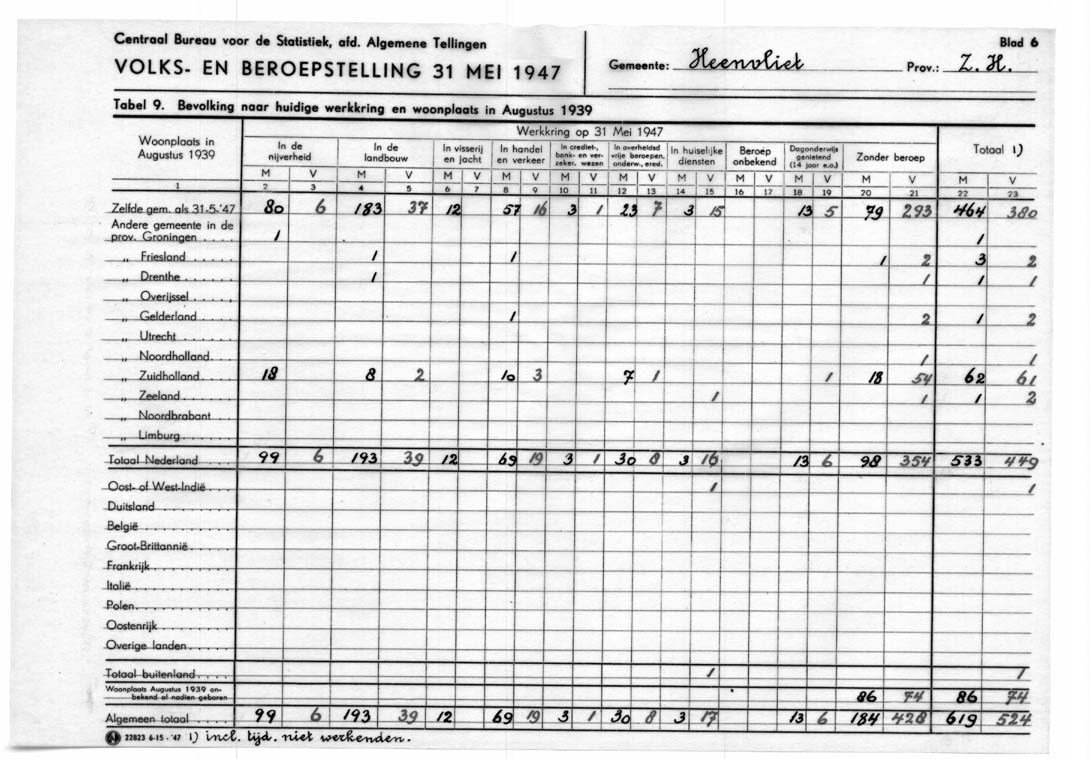 Centraal Bureau voor de Statistiek, afd. Algemene Tellingen
VOLKS- EN BEROEPSTELLING 31 MEI 1947
Gemeente: Heenvliet Prov.: Z. H.
Blad 6
Tabel 9. Bevolking naar huidige werkkring en woonplaats in Augustus 1939
Woonplaats in Augustus 1939
Werkkring op 31 Mei 1947
In de nijverheid In de landbouw In visserij en jacht In handel en verkeer In crediet-, bank- en verzeker. wezen In overheidsd vrije beroepen, onderw., ered. In huiselijke diensten Beroep onbekend Dagonderwijs genietend (14 jaar e.o.) Zonder beroep Totaal 1)
M V M V M V M V M V M V M V M V M V M V M V
1 2 3 4 5 6 7 8 9 10 11 12 13 14 15 16 17 18 19 20 21 22 23
Zelfde gem. als 31-5-'47 80 6 183 37 12 57 16 3 1 23 7 3 15 13 5 79 293 464 380
Andere gemeente in de
prov. Groningen 1 1
„ Friesland 1 1 1 2 3 2
„ Drenthe 1 1 1 1
„ Overijssel
„ Gelderland 1 2 1 2
„ Utrecht
„ Noordholland 1 1
„ Zuidholland 18 8 2 10 3 7 1 1 18 54 62 61
„ Zeeland 1 1 1 2
„ Noordbrabant
„ Limburg
Totaal Nederland 99 6 193 39 12 69 19 3 1 30 8 3 16 13 6 98 354 533 449
Oost- of West-Indië 1 1
Duitsland
België
Groot-Brittannië
Frankrijk
Italië
Polen
Oostenrijk
Overige landen
Totaal buitenland 1 1
Woonplaats Augustus 1939 on-
bekend of nadien geboren 86 74 86 74
Algemeen totaal 99 6 193 39 12 69 19 3 1 30 8 3 17 13 6 184 428 619 524
22823 6-15-'47 1) incl. tijd. niet werkenden.